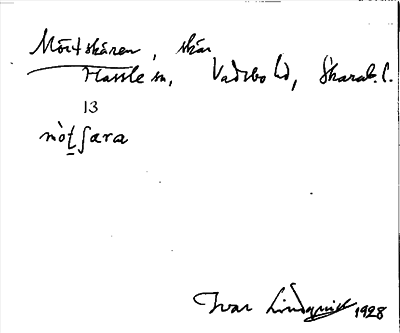 Mörtskären, skär
Hassle sn, Vadsbo hd, Skarab. l.
13
mò̀ṯʃæra
Ivar Lindquist 1928